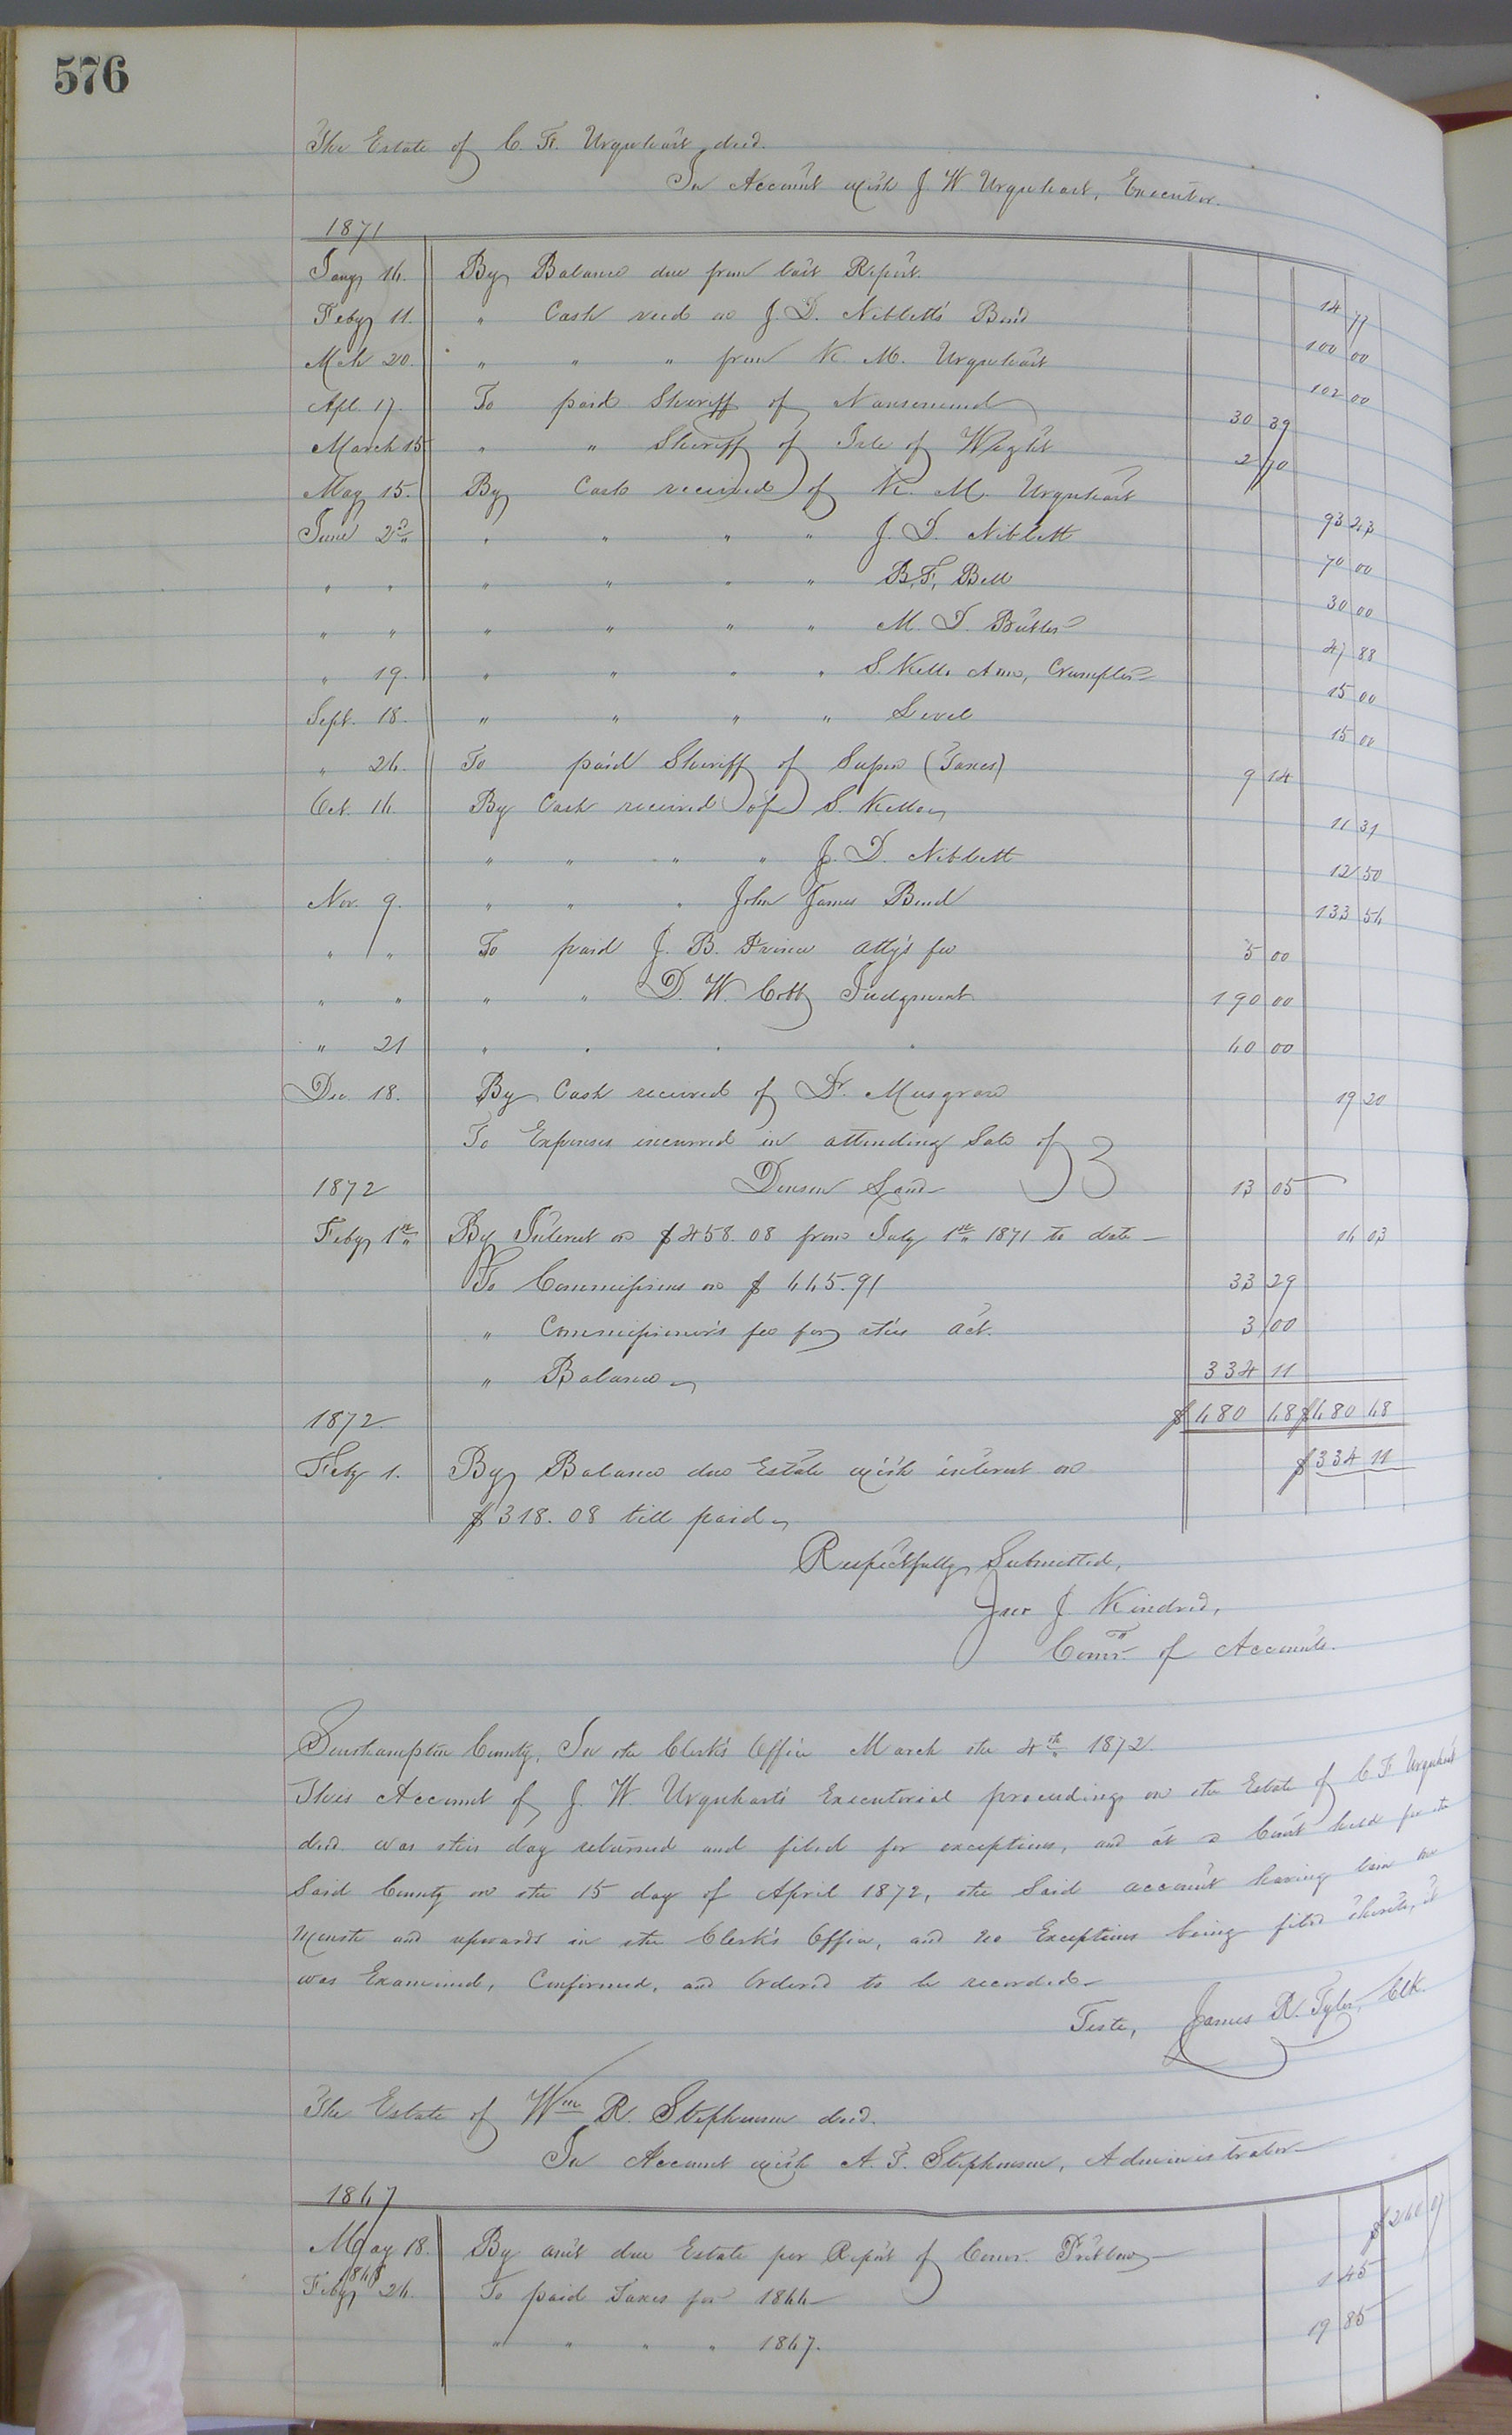 576
The Estate of C. F. Urquhart decd.
In Account with J. W. Urquhart, Executor.
1871
Jany 16. By Balance due from last Report. 14 77
Feby 11. " Cash recd on J. D. Niblett's Bond 100 00
Mch 20. " " " from N. M. Urquhart 102 00
Apl. 17. To paid Sheriff of Nansemond 30 39
March 15 " " Sheriff of Isle of Wight 2 70
May 15. By Cash received of N. M. Urquhart 93 23
June 2d " " " " J. D. Niblett 70 00
" " " " " " B. F. Bell 30 00
" " " " " " M. D. Butler 47 88
" 19. " " " " S. Kello Crumpler 15 00
Sept. 18. " " " " 15 00
" 26. To paid Sheriff of Sussex (Taxes) 9 14
Oct. 16. By Cash received of S. Kello 11 31
" " " " J. D. Niblett 12 50
Nov. 9. " " " John James Bond 133 56
" " To paid J. B. Prince atty's fee 5 00
" " " " D. W. Cobb Judgment 190 00
" 21 " " " " 60 00
Dec. 18. By Cash received of Dr. Musgrave 19 20
To Expenses incurred in attending Sale of
1872 Land 13 05
Feby 1st By Interest on $458.08 from July 1st 1871 to date 16 03
To Commissions on $665.91 33 29
" Commissioner's fee for this act. 3 00
" Balance 334 11
1872. $680 48 $680 48
Feby 1. By Balance due Estate with interest on $334 11
$318.08 till paid
Respectfully Submitted,
Jno J. Kindred,
Comr. of Accounts.
Southampton County, In the Clerk's Office March the 4th 1872.
This Account of J. W. Urquhart's Executorial proceedings on the Estate of C. F. Urquhart
decd. was this day returned and filed for exceptions, and at a Court held for the
Said County on the 15 day of April 1872, the Said account having lain one
Month and upwards in the Clerk's Office, and no Exceptions being filed thereto, it
was Examined, Confirmed, and Ordered to be recorded
Teste, James R. Tyler, Clk.
The Estate of Wm R. Stephenson decd.
In Account with A. T. Stephenson, Administrator
1867
May 18. By amt due Estate per Report of Comr. Pretlow $260 07
1868
Feby 26. To paid Taxes for 1866 1 45
" " " " 1867. 19 85